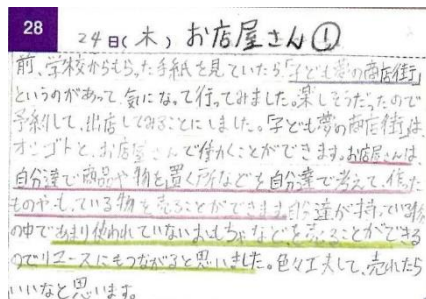 28
24日(木) お店屋さん①
前、学校からもらった手紙を見ていたら「子ども夢の商店街」
というのがあって、気になって行ってみました。楽しそうだったので
予約して、出店してみることにしました。「子ども夢の商店街」は、
オシゴトと、お店屋さんで働くことができます。お店屋さんは、
自分達で商品や物を置く所などを自分達で考えて、作った
ものやもっている物を売ることができます。自分達が持っている物
の中であまり使われていないおもちゃなどを売ることができる
のでリユースにもつながると思いました。色々工夫して、売れたら
いいなと思います。